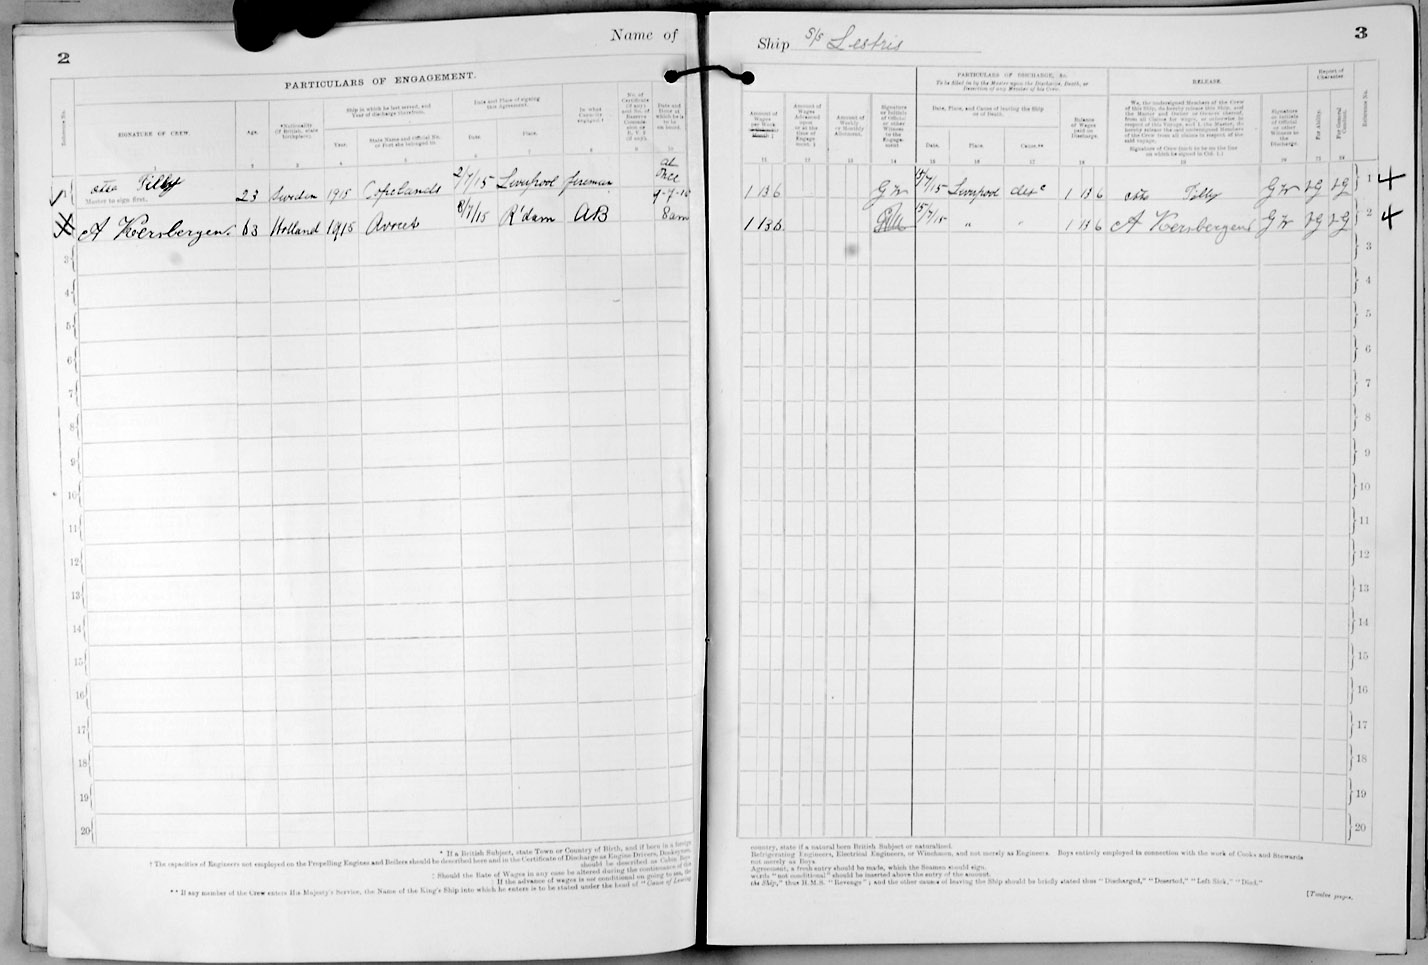 2
Name of
PARTICULARS OF ENGAGEMENT.
Reference No.
SIGNATURE OF CREW.
Age.
*Nationality
(If British, state
birthplace).
Ship in which he last served, and
Year of discharge therefrom.
Year.
State Name and official No.
or Port she belonged to.
Date and Place of signing
this Agreement.
Date.
Place.
In what
Capacity
engaged.†
Date and
Hour at
which he is
to be
on board.
1 3 4 5 6 7 8 9 10
Master to sign first.
Otto Tilby 23 Sweden 1915 Copelands 2/7/15 Liverpool fireman at once
9-7-15
A Koersbergen. 63 Holland 1915 Avocet 8/7/15 R'dam AB 8am
3
4
5
6
7
8
9
10
11
12
13
14
15
16
17
18
19
20
* If a British Subject, state Town or Country of Birth, and if born in a foreign
† The capacities of Engineers not employed on the Propelling Engines and Boilers should be described here and in the Certificate of Discharge as Engine Drivers, Donkeymen,
should be described as Cabin Boys
‡ Should the Rate of Wages in any case be altered during the continuance of the
‡ If the advance of wages is not conditional on going to sea, the
** If any member of the Crew enters His Majesty's Service, the Name of the King's Ship into which he enters is to be stated under the head of "Cause of Leaving
3
Ship S/S Lestris
PARTICULARS OF DISCHARGE, &c.
To be filled in by the Master upon the Discharge, Death, or
Desertion of any Member of his Crew.
RELEASE.
Report of
Character.
Amount of
Wages
per Week
Amount of
Wages
Advanced
upon
or at the
time of
Engage-
ment. ‡
Amount of
Weekly
or Monthly
Allotment.
Signature
or Initials
of Official
or other
Witness
to the
Engage-
ment
Date, Place, and Cause of leaving this Ship
or of Death.
Date.
Place.
Cause.**
Balance
of Wages
paid on
Discharge.
We, the undersigned Members of the Crew
of this Ship, do hereby release this Ship, and
the Master and Owner or Owners thereof,
from all Claims for wages, or otherwise in
respect of this Voyage, and I, the Master, do
hereby release the said undersigned Members
of the Crew from all claims in respect of the
said voyage.
Signature of Crew (each to be on the line
on which he signed in Col. 1.)
Signature
or Initials
of Official
or other
Witness to
the
Discharge.
For Ability.
For General
Conduct.
Reference No.
11 12 13 14 15 16 17 18 19 20
1 13 6 GW 15/7/15 Liverpool disc 1 13 6 Otto Tilby GW VG VG 1 4
1 13 6 15/7/15 " " 1 13 6 A Koersbergen GW VG VG 2 4
3
4
5
6
7
8
9
10
11
12
13
14
15
16
17
18
19
20
country, state if a natural born British Subject or naturalized.
Refrigerating Engineers, Electrical Engineers, or Winchmen, and not merely as Engineers. Boys entirely employed in connection with the work of Cooks and Stewards
not merely as Boys.
Agreement, a fresh entry should be made, which the Seamen should sign.
words "not conditional" should be inserted above the entry of the amount.
the Ship," thus H.M.S. "Revenge"; and the other causes of leaving the Ship should be briefly stated thus "Discharged," "Deserted," "Left Sick," "Died."
[Twelve pages.